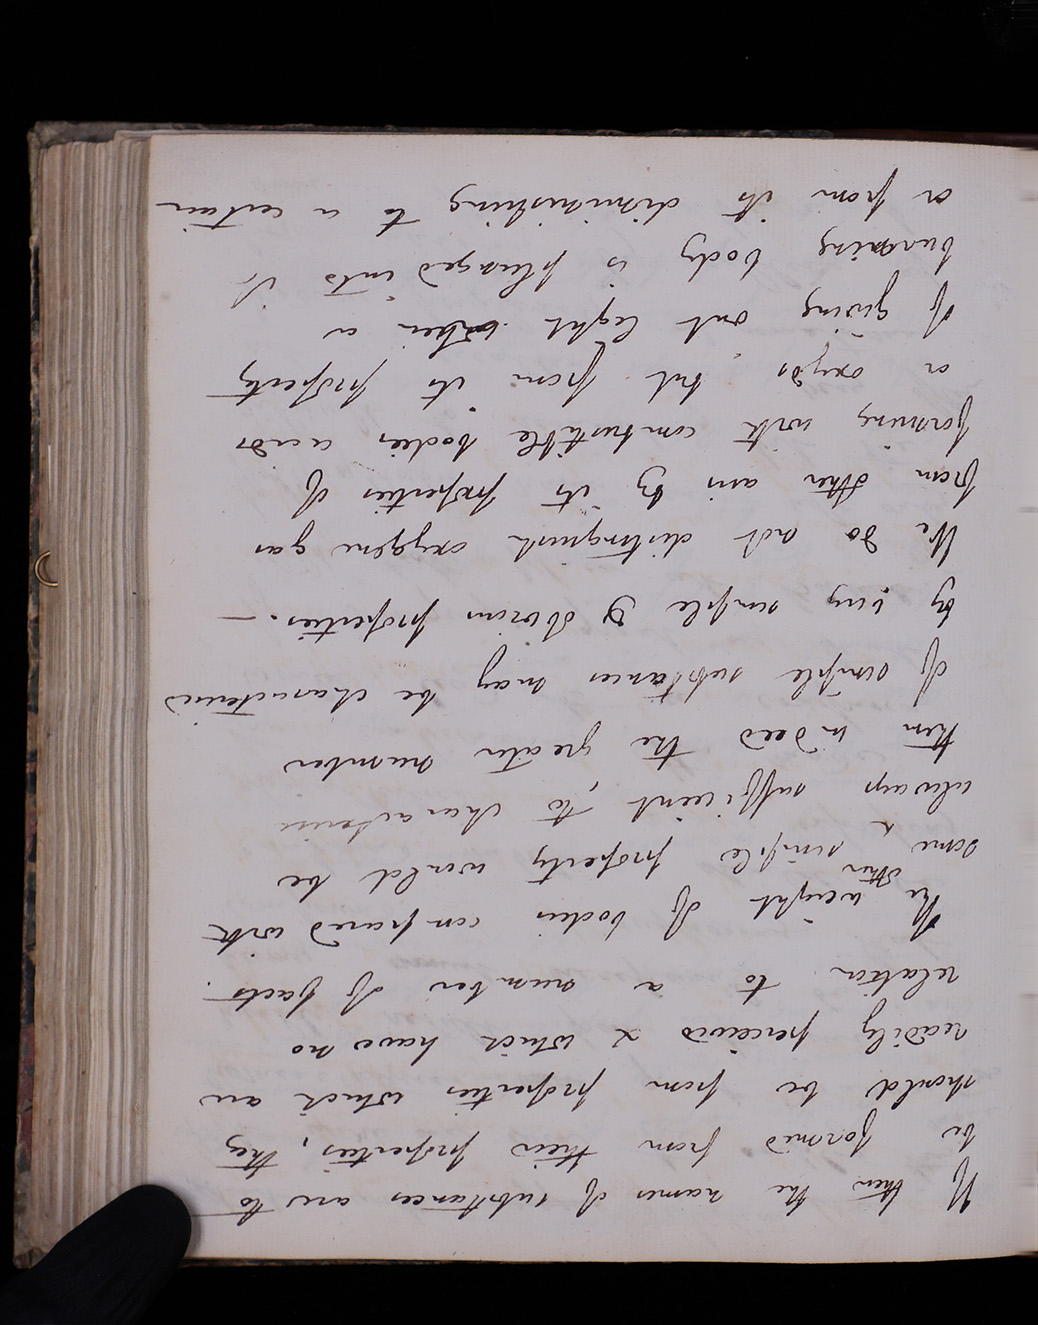 If then the names of substances are to
be formed from their properties, they
should be from properties which are
readily perceived & which have no
relation to a number of facts.
The weight of bodies compared with
some other simple property would be
always sufficient to characterise
them indeed the greater number
of simple substances may be characterised
by very simple & obvious properties. —
We do not distinguish oxygene gas
from other airs by its properties of
forming with combustible bodies acids
or oxyds but from its property
of giving out light when a
burning body is plunged into it
or from its diminishing to a certain